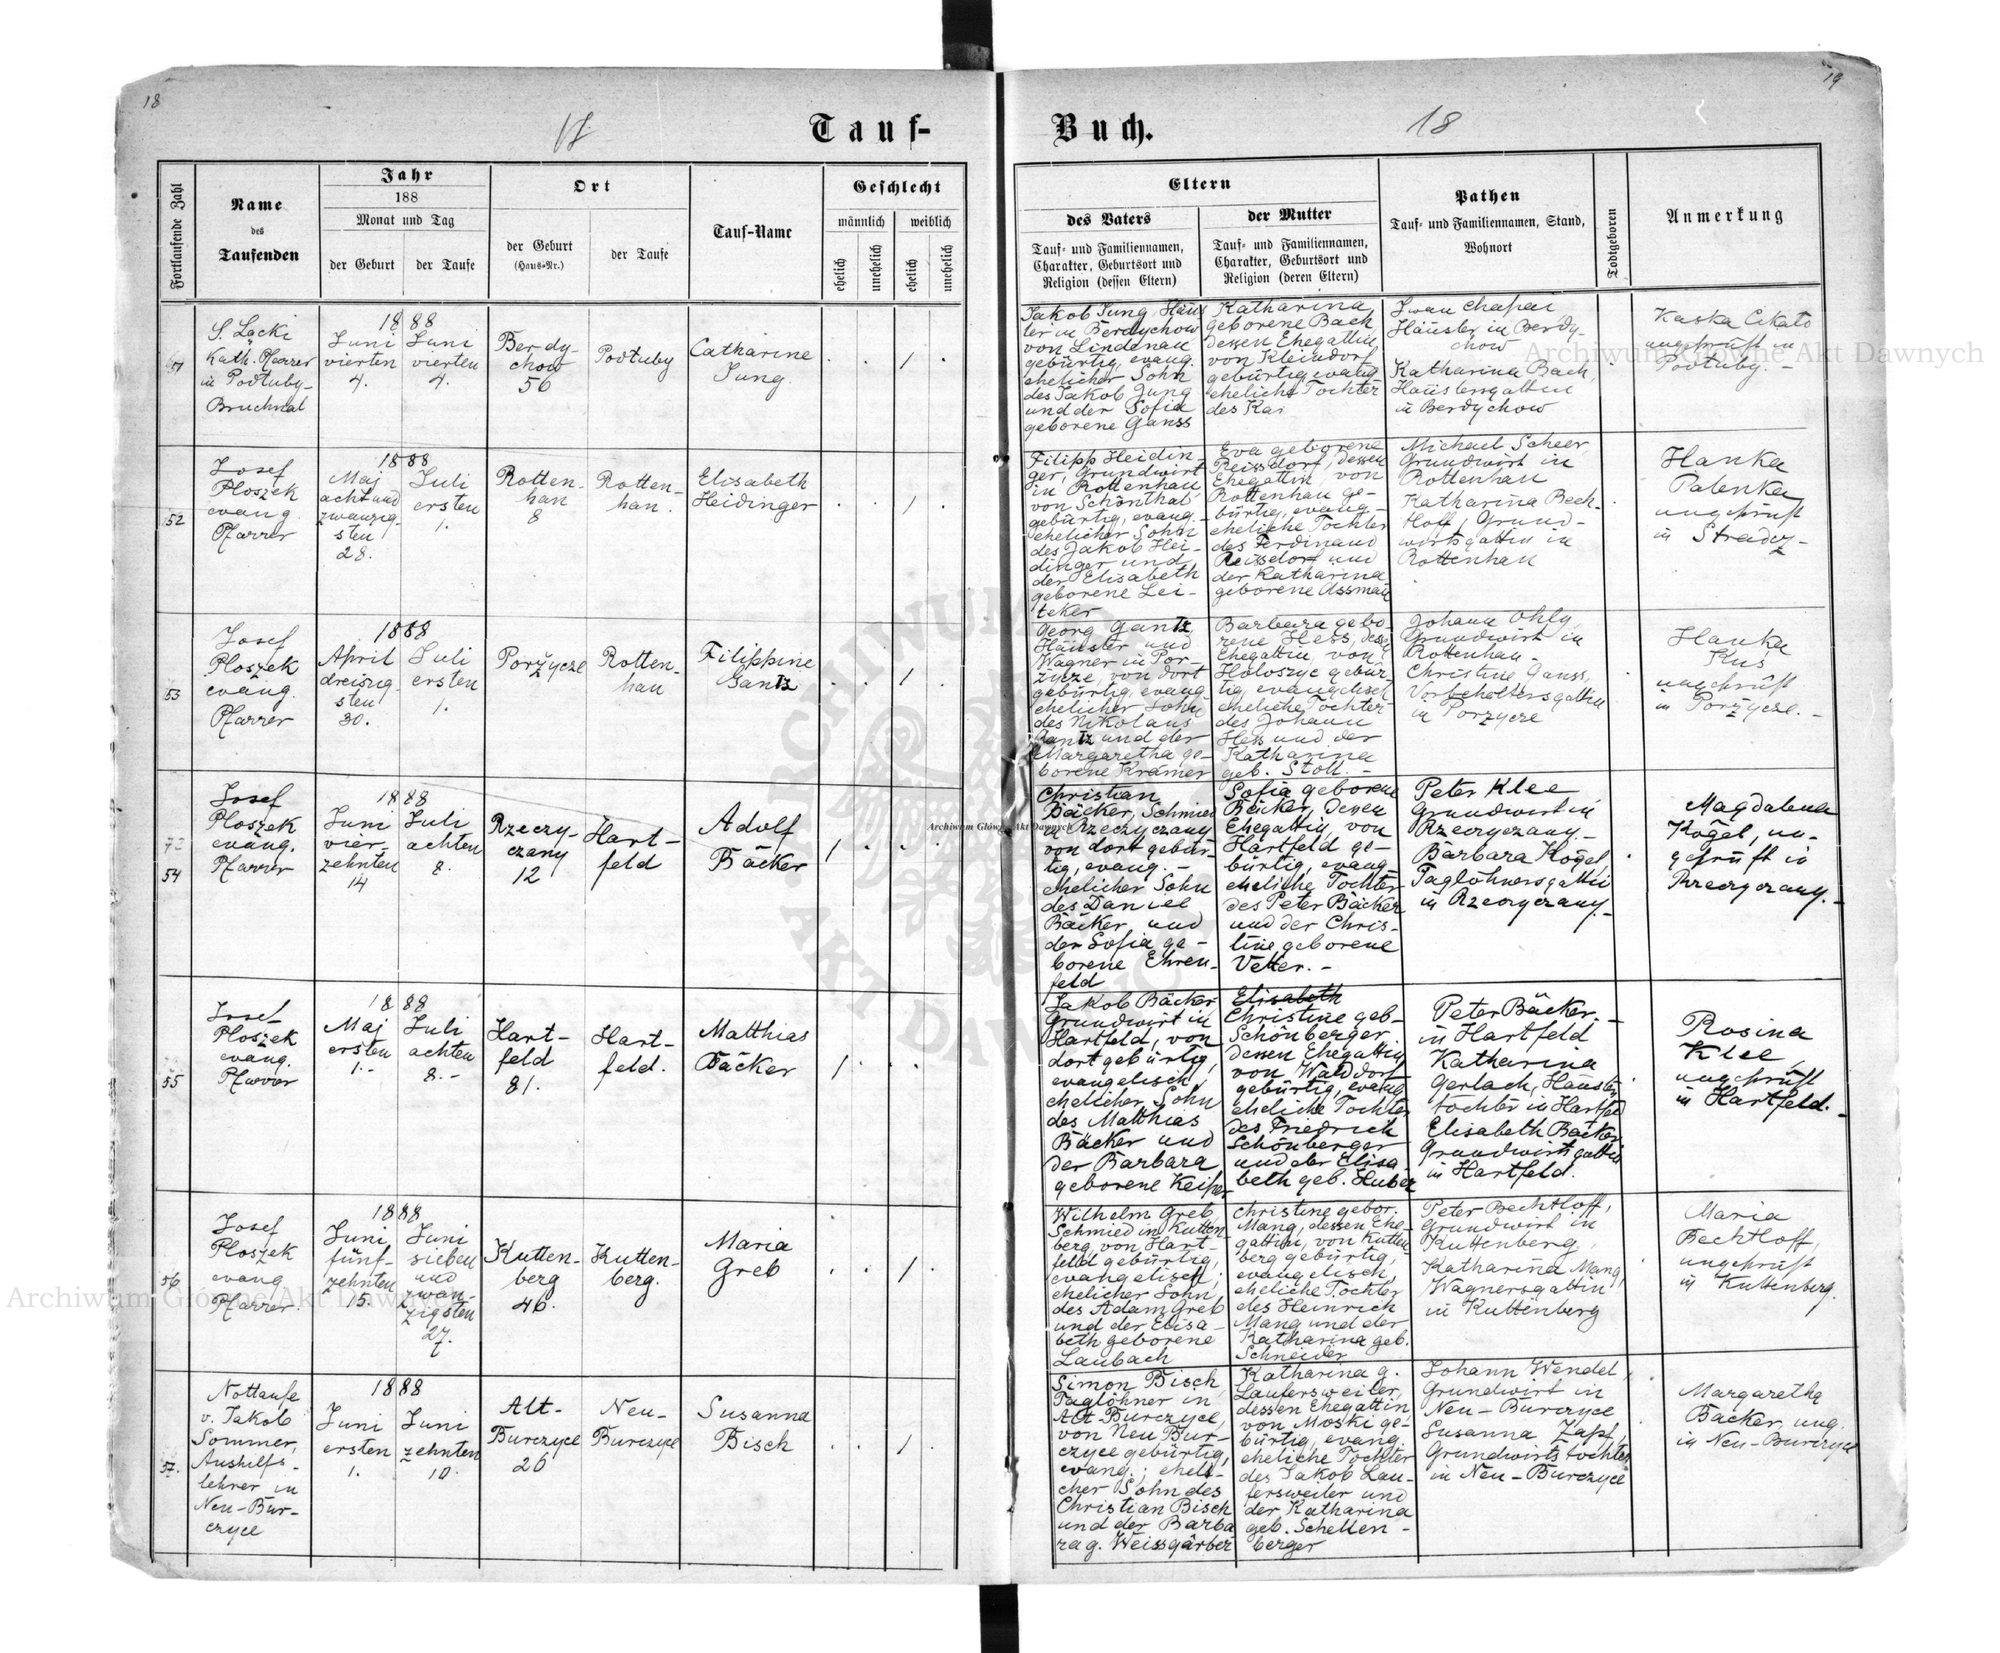 18
17
Tauf-
Buch.
18
19
Fortlaufende Zahl
Name
des
Taufenden
Jahr
188
Monat und Tag
der Geburt
der Taufe
Ort
der Geburt
(Haus-Nr.)
der Taufe
Tauf-Name
Geschlecht
männlich
weiblich
ehelich
unehelich
ehelich
unehelich
Eltern
des Vaters
Tauf- und Familiennamen,
Charakter, Geburtsort und
Religion (dessen Eltern)
der Mutter
Tauf- und Familiennamen,
Charakter, Geburtsort und
Religion (deren Eltern)
Pathen
Tauf- und Familiennamen, Stand,
Wohnort
Todtgeboren
Anmerkung
S. Łacki
Kath. Pfarrer
in Podłuby-
Bruchnal
1888
Juni
vierten
4.
Juni
vierten
4.
Berdy-
chow
56
Podłuby
Catharine
Jung
Jakob Jung Häus
ler in Berdychow
von Lindenau
gebürtig, evang.
ehelicher Sohn
des Jakob Jung
und der Sofia
geborene Ganss
Katharina
geborene Bach
dessen Ehegattin,
von Kleindorf
gebürtig evang
eheliche Tochter
des Kas
Iwan
Häusler in Berdy-
chow
Katharina Bach,
Häuslersgattin
in Berdychow
Kaska
ungeprüft in
Podłuby.-
52
Josef
Ploszek
evang.
Pfarrer
1888
Maj
acht und
zwanzig-
sten
28.
Juli
ersten
1.
Rotten-
han
8
Rotten-
han.
Elisabeth
Heidinger
Filipp Heidin-
ger, Grundwirt
in Rottenhan
von Schönthal
gebürtig, evang.-
ehelicher Sohn
des Jakob Hei-
dinger und
der Elisabeth
geborene Lei-
teker
Eva geborene
Reissdorf, dessen
Ehegattin, von
Rottenhan ge-
bürtig, evang-
eheliche Tochter
des Ferdinand
Reissdorf und
der Katharina
geborene Assman
Michael Scheer,
Grundwirt in
Rottenhan
Katharina Bech-
tloff, Grund-
wirtsgattin in
Rottenhan
Hanka
Palenka
ungeprüft
in
53
Josef
Ploszek
evang.
Pfarrer
1888
April
dreissig-
sten
30.
Juli
ersten
1.
Poržycze
Rotten-
han
Filippine
Gantz
Georg Gantz,
Häusler und
Wagner in Por-
zycze, von dort
gebürtig, evang-
ehelicher Sohn
des Nikolaus
Gantz und der
Margaretha ge-
borene Kramer
Barbara gebo-
rene Hess, dessen
Ehegattin, von
Holoszyc gebür-
tig, evangelisch
eheliche Tochter
des Johann
Hess und der
Katharina
geb. Stoll.-
Johann Ohly,
Grundwirt in
Rottenhan-
Christine Ganss,
Vorbehältersgattin
in Porzycze
Hanka
Kuś
ungeprüft
in Poržycze.-
54
Josef
Ploszek
evang.
Pfarrer
1888
Juni
vier-
zehnten
14
Juli
achten
8.
Rzeczy-
czany
12
Hart-
feld
Adolf
Bäcker
Christian
Bäcker, Schmied
in Rzeczyczany
von dort gebür-
tig, evang.-
ehelicher Sohn
des Daniel
Bäcker und
der Sofia ge-
borene Ehren-
feld
Sofia geborene
Bäcker, dessen
Ehegattin, von
Hartfeld ge-
bürtig, evang-
eheliche Tochter
des Peter Bäcker
und der Chris-
tine, geborene
Vetter.-
Peter Klee
Grundwirt in
Rzeczyczany-
Barbara Kogel,
Taglöhnersgattin
in Rzeczyczany.-
Magdalena
Kogel, un-
geprüft in
Rzeczyczany.-
55
Josef
Ploszek
evang.
Pfarrer
1888
Maj
ersten
1.-
Juli
achten
8.-
Hart-
feld
81.
Hart-
feld.
Matthias
Bäcker
Jakob Bäcker
Grundwirt in
Hartfeld, von
dort gebürtig,
evangelisch,
ehelicher Sohn
des Matthias
Bäcker und
der Barbara
geborene Keiper
Elisabeth
Christine geb-
Schönberger
dessen Ehegattin
von Walddorf
gebürtig, evang
eheliche Tochter
des Friedrich
Schönberger
und der Elisa-
beth geb. Huber
Peter Bäcker.-
in Hartfeld
Katharina
Gerlach, Häusler
tochter in Hartfeld
Elisabeth Bäcker
Grundwirtsgattin
in Hartfeld.
Rosina
Klee,
ungeprüft
in Hartfeld.-
56
Josef
Ploszek
evang
Pfarrer.
1888
Juni
fünf-
zehnten
15.
Juni
sieben
und
zwan-
zigsten
27.
Kutten-
berg
46.
Kutten-
berg.
Maria
Greb
Wilhelm Greb
Schmied in Kutten
berg, von Hart-
feld gebürtig,
evangelisch,
ehelicher Sohn,
des Adam Greb
und der Elisa-
beth geborene
Laubach
Christine gebor.
Mang, dessen Ehe-
gattin, von Kutten
berg gebürtig,
evangelisch,
eheliche Tochter
des Heinrich
Mang und der
Katharina geb.
Schneider
Peter Bechtloff,
Grundwirt in
Kuttenberg,
Katharina Mang,
Wagnersgattin
in Kuttenberg
Maria
Bechtloff,
ungeprüft
in Kuttenberg.
57.
Nottaufe
v. Jakob
Sommer,
Aushilfs-
lehrer in
Neu-Bur-
czyce
1888
Juni
ersten
1.
Juni
zehnten
10.
Alt-
Burczyce
26
Neu-
Burczyce
Susanna
Bisch
Simon Bisch,
Taglöhner in
Alt-Burczyce,
von Neu Bur-
czyce gebürtig,
evang.; eheli-
cher Sohn des
Christian Bisch
und der Barba
ra g. Weissgärber
Katharina g.
Laufersweiler,
dessen Ehegattin
von Moski ge-
bürtig, evang.
eheliche Tochter
des Jakob Lau-
fersweiler und
der Katharina
geb. Schellen-
berger
Johann Wendel,
Grundwirt in
Neu-Burczyce
Susanna Zapf,
Grundwirtstochter
in Neu-Burczyce
Margaretha
Bäcker, ung.
in Neu-Burczyce
Archiwum Główne Akt Dawnych
Archiwum Główne Akt Dawnych
Archiwum Główne Akt Dawnych